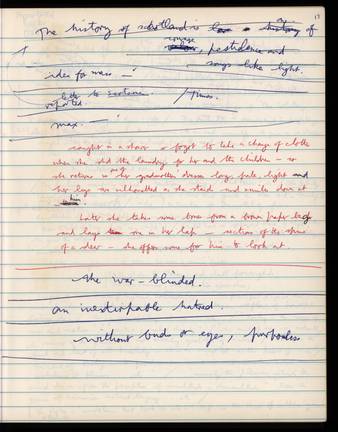 17
The history of scotland is a history of
, pestilence and
songs like light.
idea for max —
letter to
reported.
/ Times.
max. —
caught in a shower & forgot to take a change of clothes
when she did the laundry for her and the children – so
she returns in her grandmothers dress long, pale, light and
her legs are silhouetted as she stands and smiles down at
him.
Later she takes some bones from a brown paper bag
and lays in her lap — sections of the spine
of a deer — she offers some for him to look at
she war-blinded.
an inexterpable hatred.
without bud or eyes, purposeless